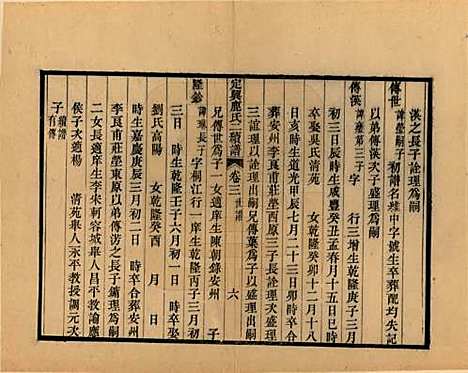 漢之長子詮理爲嗣
傳世 諱瑩嗣子 初諱名 中字號生卒葬配均失記
以弟傳漢次子盛理爲嗣
傳漢 諱瑩第三子 字 行三增生乾隆庚子三月
初三日辰時生咸豐癸丑孟春月十五日巳時
卒娶吳氏清苑 女乾隆癸卯十二月十八
日亥時生道光甲辰七月二十三日卯時卒合
葬安州李良甫莊塋西原三子長詮理次盛理
三誼理以詮理出嗣兄傳葉爲子以盛理出嗣
定興鹿氏二續譜 卷三 世譜 六
兄傳世爲子一女適庠生陳朝錄安州 子
隆 諱 長子 字桐江行一庠生乾隆丙子三月初
三日 時生乾隆壬子六月初一日 時卒娶
劉氏高陽 女乾隆癸酉 月 日
時生嘉慶庚辰三月初二日 時卒合葬安州
李良甫莊塋東原以弟傳 之長子鏞理爲嗣
二女長適庠生李朱軻容城舉人昌平教諭應
侯子次適楊 清苑舉人永平教授調元次
子 續譜有傳